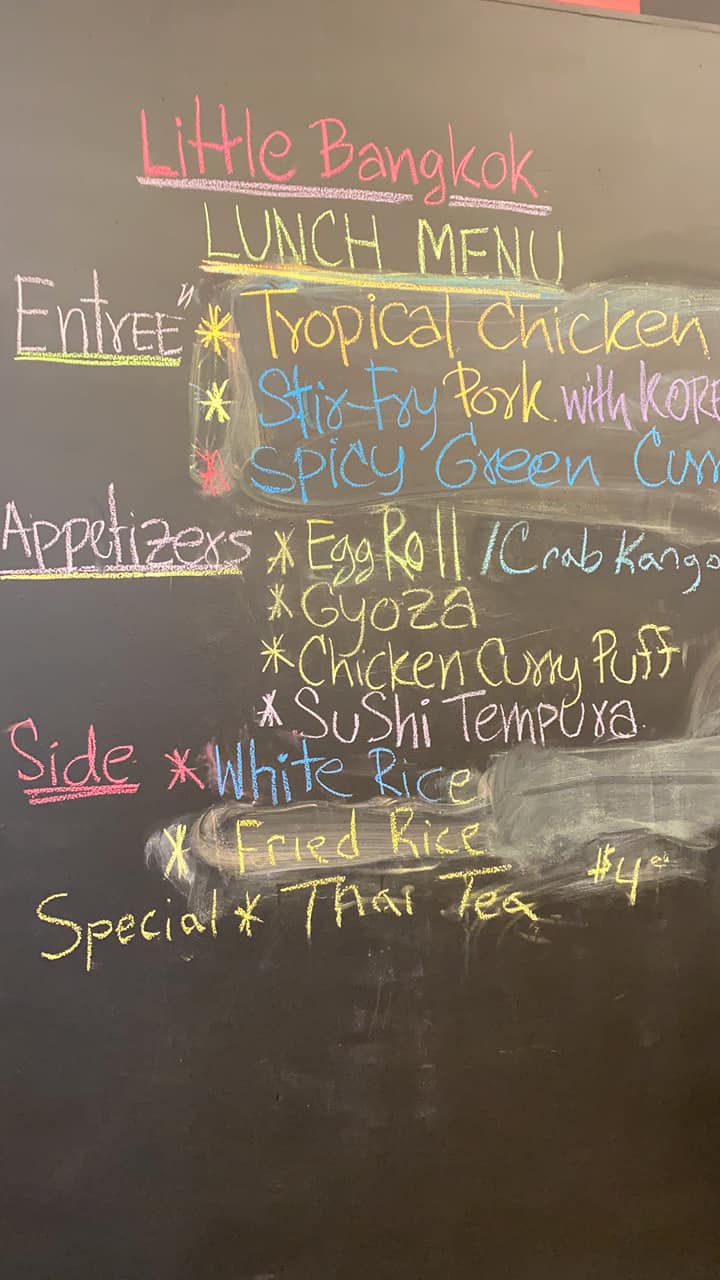 Little Bangkok
LUNCH MENU
EntrEE" * Tropical Chicken
* Stir-Fry Pork with KORE
* Spicy Green Curr
Appetizers * Egg Roll / Crab Rango
* Gyoza
* Chicken Curry Puff
* SuShi Tempura
Side * White Rice
* Fried Rice
Special * Thai Tea $4 ea